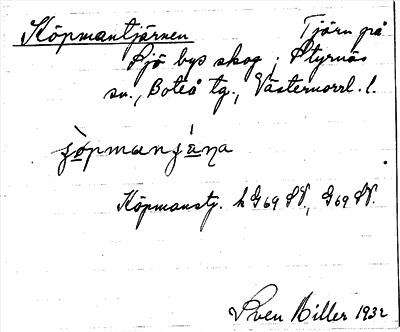 Köpmantjärnen Tjärn på
Sjö bys skog, Styrnäs
sn., Boteå tg., Västernorrl. l.
Köpmanstj. h G69 SV., G69 SV.
Sven Miller 1932